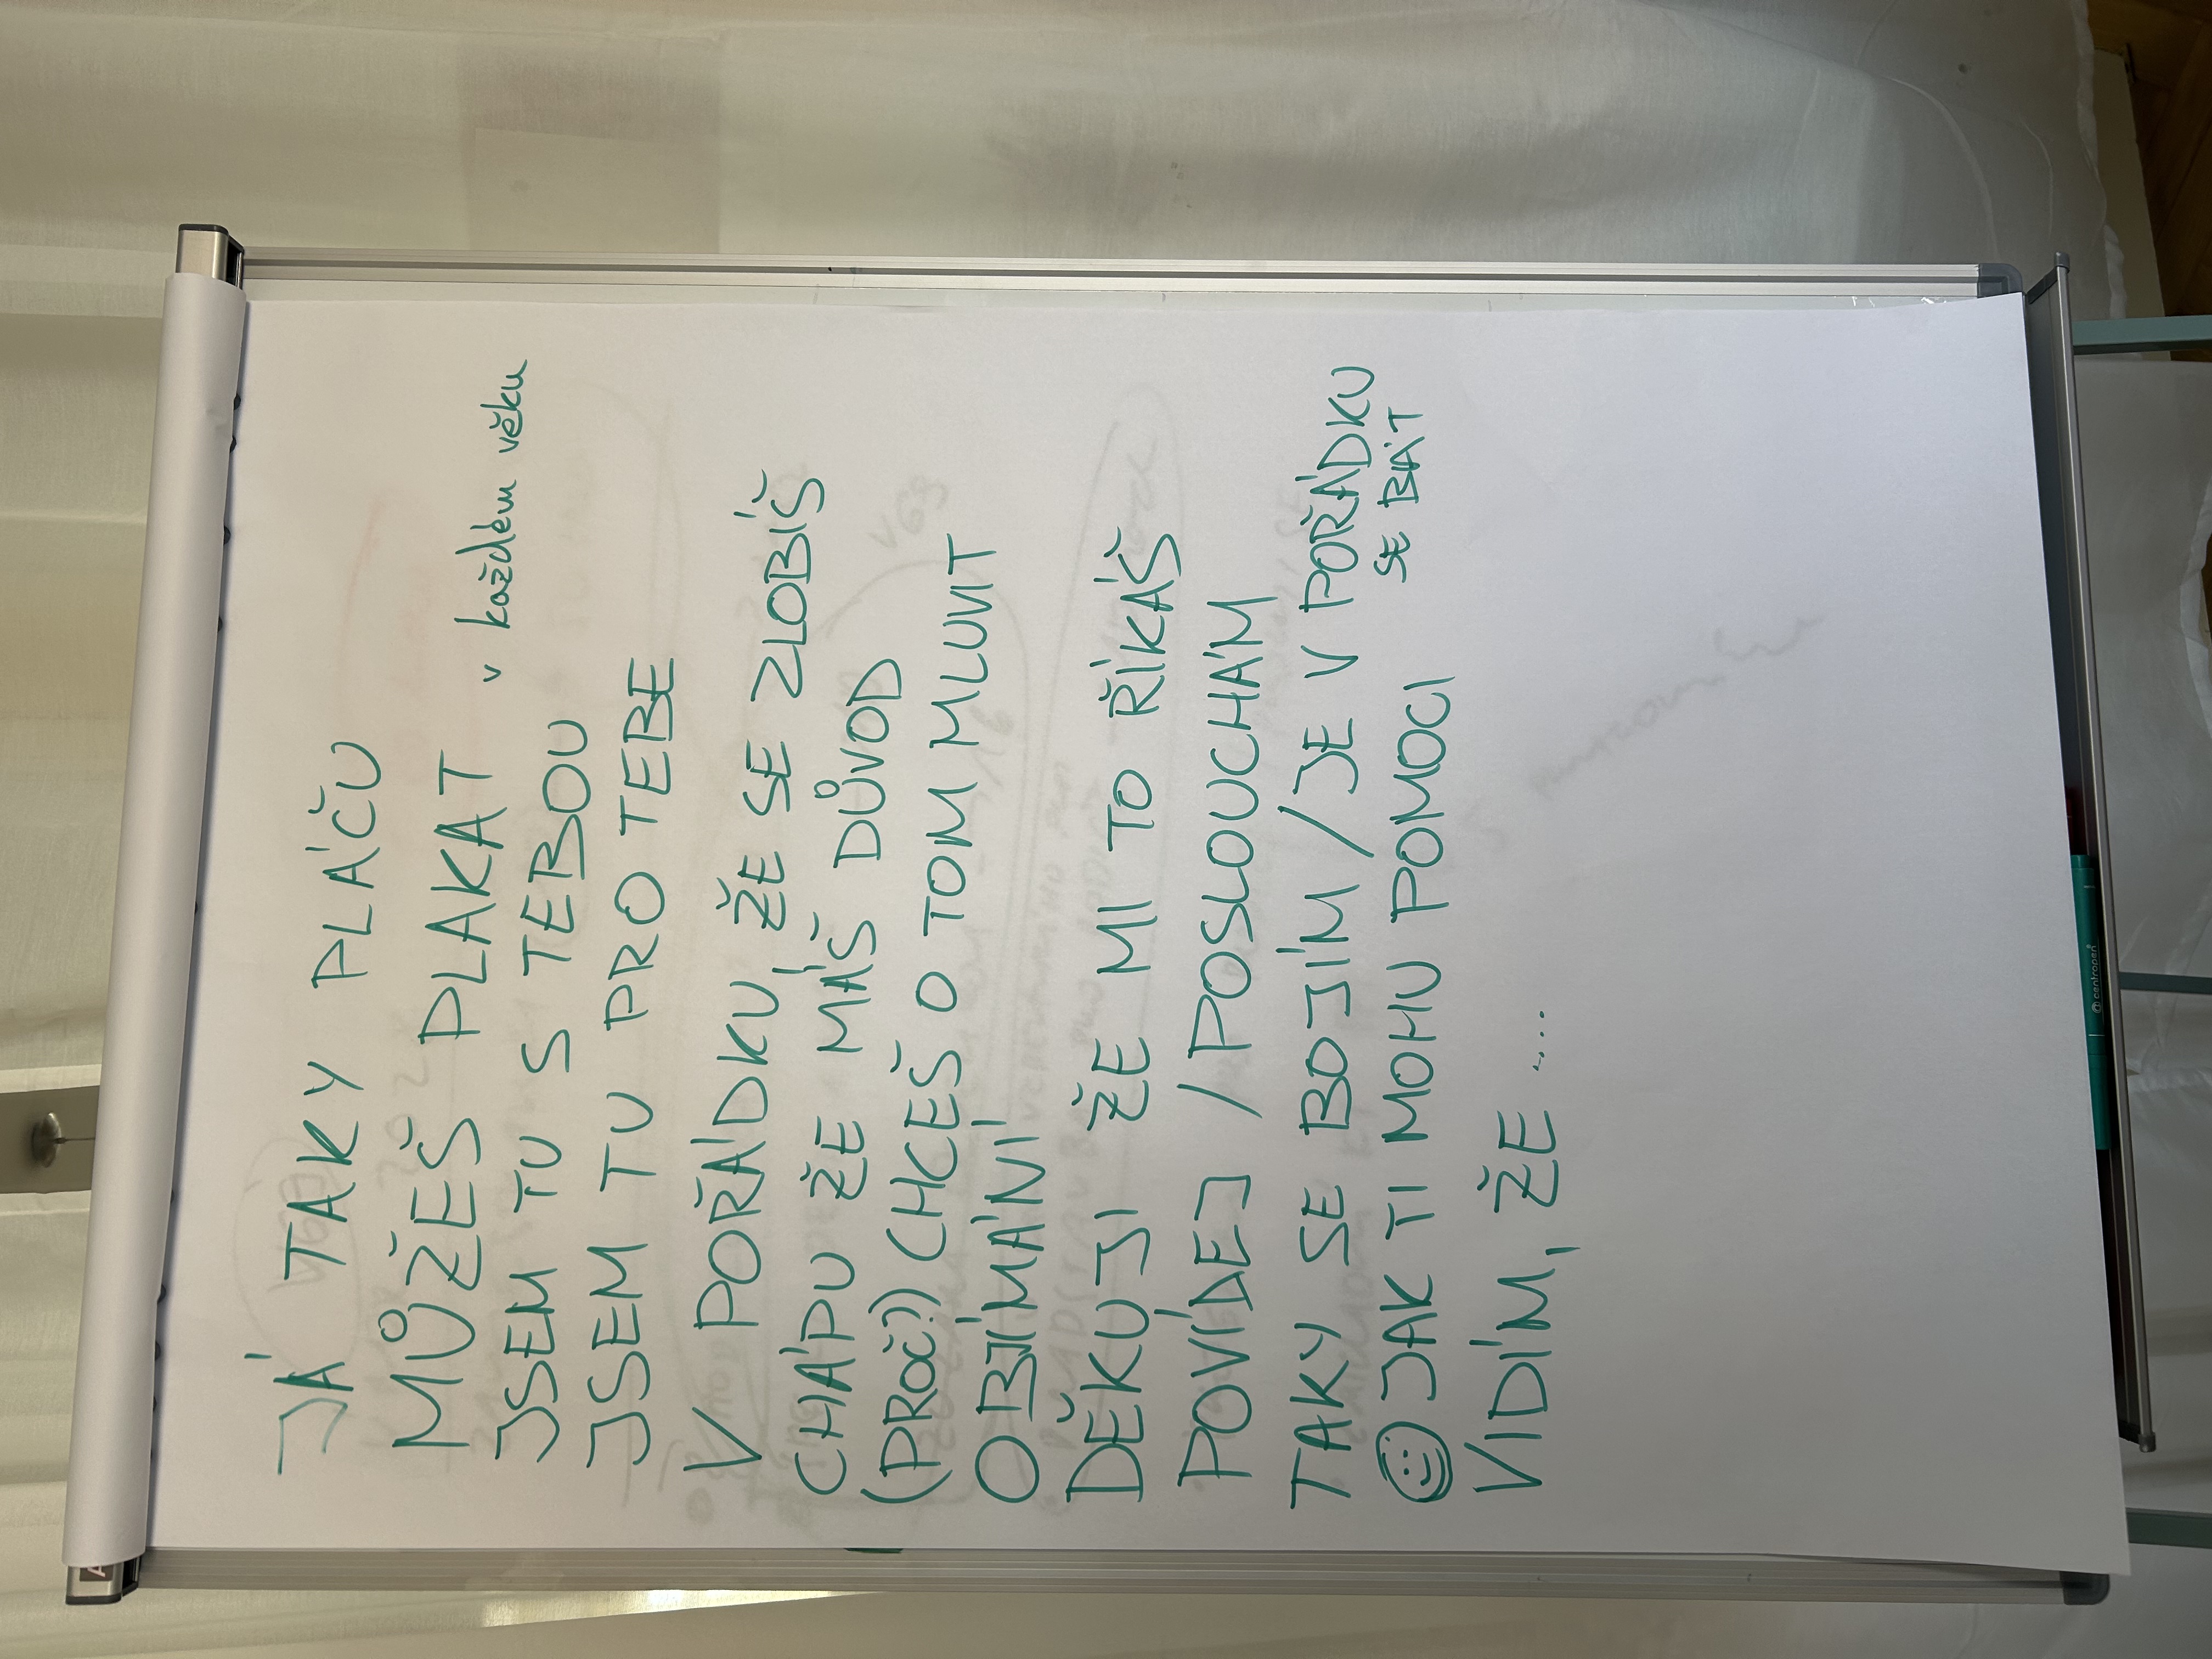 JÁ TAKY PLÁČU
MŮŽEŠ PLAKAT v každém věku
JSEM TU S TEBOU
JSEM TU PRO TEBE
V POŘÁDKU, ŽE SE ZLOBÍŠ
CHÁPU ŽE MÁŠ DŮVOD
(PROČ?) CHCEŠ O TOM MLUVIT
OBJÍMÁNÍ
DĚKUJI ŽE MI TO ŘÍKÁŠ
POVÍDEJ / POSLOUCHÁM
TAKY SE BOJÍM / JE V POŘÁDKU
SE BÁT
JAK TI MOHU POMOCI
VIDÍM, ŽE ....
centropen